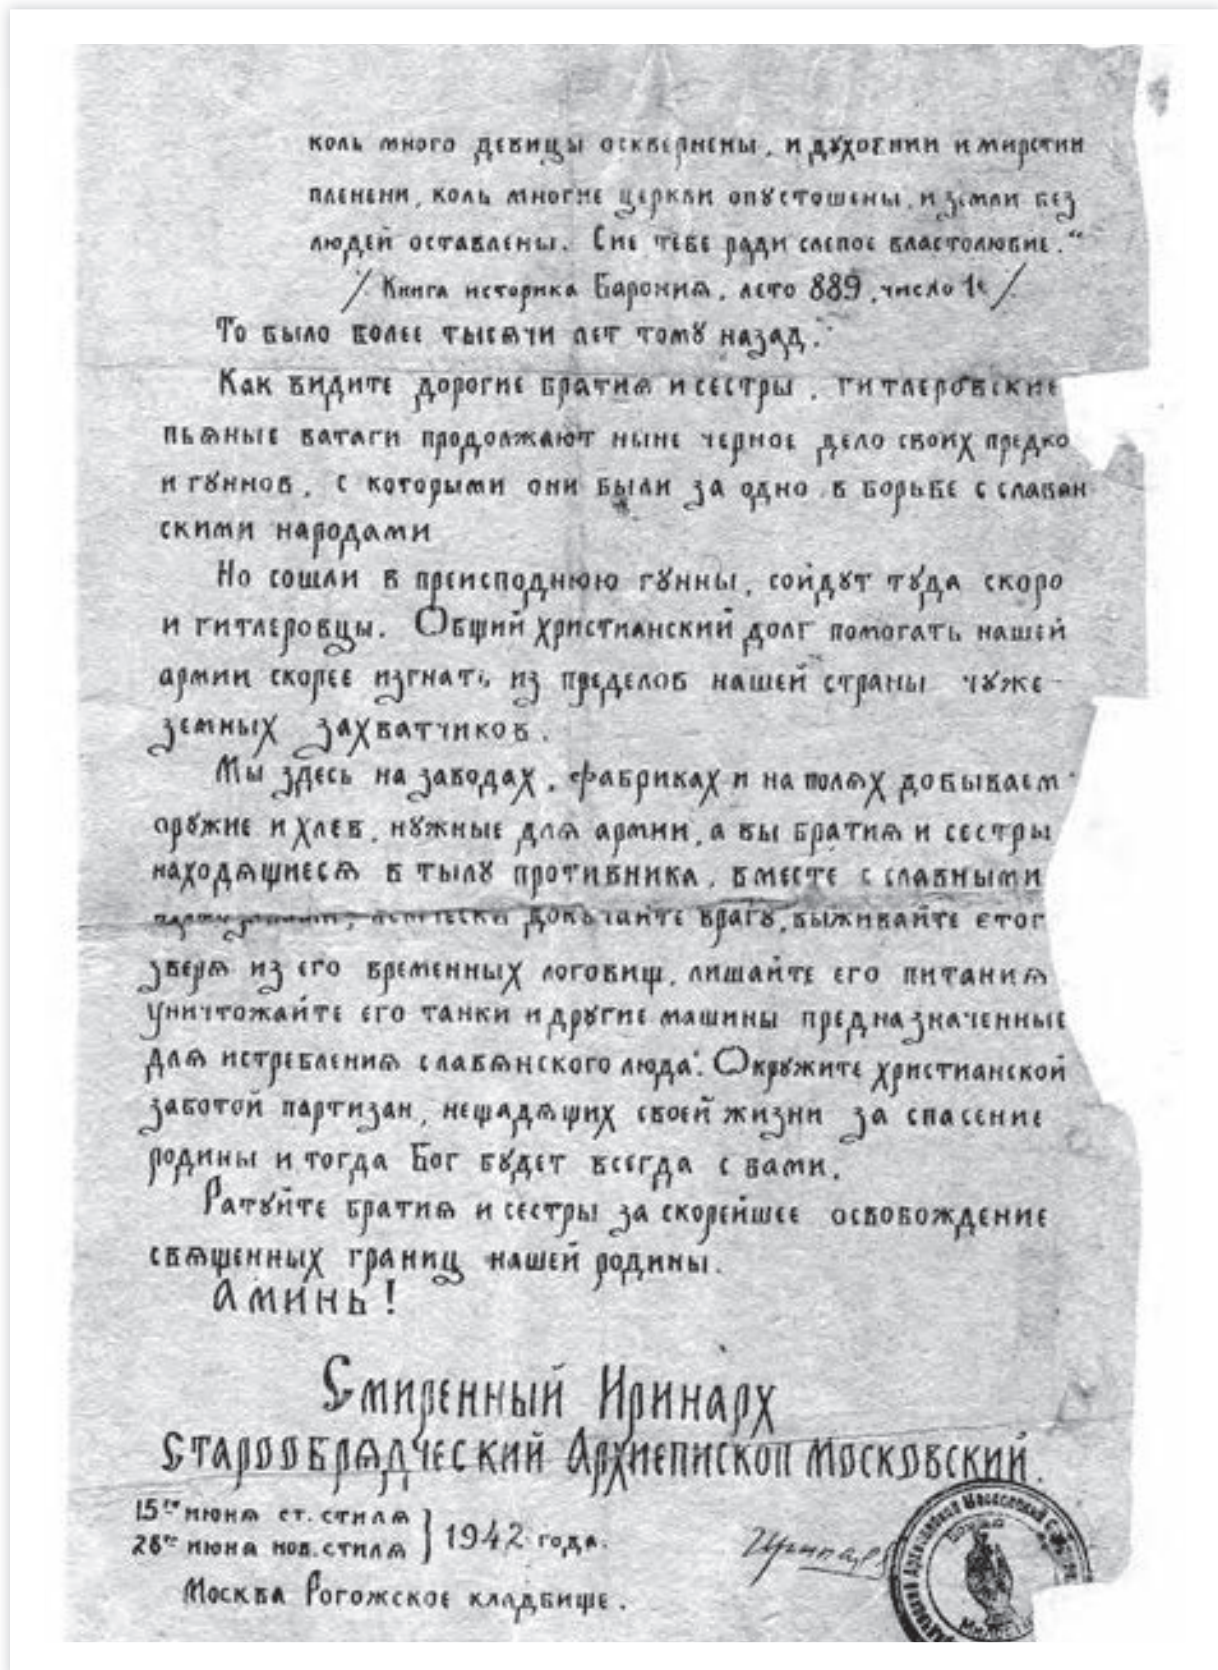 коль много девицы осквернены, и духовнии и мирстии
пленени, коль многие церкви опустошены, и земли без
людей оставлены. Сие тебе ради слепое властолюбие.“
/. Книга историка Барония, лето 889, число 1е /.
То было более тысячи лет тому назад.
Как видите дорогие братия и сестры, гитлеровские
пьяные ватаги продолжают ныне черное дело своих предко
и гуннов, с которыми они были за одно в борьбе с славян
скими народами
Но сошли в преисподнюю гунны, сойдут туда скоро
и гитлеровцы. Общий христианский долг помогать нашей
армии скорее изгнать из пределов нашей страны чуже-
земных захватчиков.
Мы здесь на заводах, фабриках и на полях добываем
оружие и хлеб, нужные для армии, а вы братия и сестры
находящиеся в тылу противника, вместе с славными
врагу, выживайте етог
зверя из его временных логовищ, лишайте его питания
уничтожайте его танки и другие машины предназначенные
для истребления славянского люда. Окружите христианской
заботой партизан, нещадящих своей жизни за спасение
родины и тогда Бог будет всегда с вами.
Ратуйте братия и сестры за скорейшее освобождение
священных границ нашей родины.
Аминь!
Смиренный Иринарх
Старообрядческий Архиепископ Московский.
15го июня ст. стиля
28го июня нов. стиля } 1942 года.
Москва Рогожское кладбище.